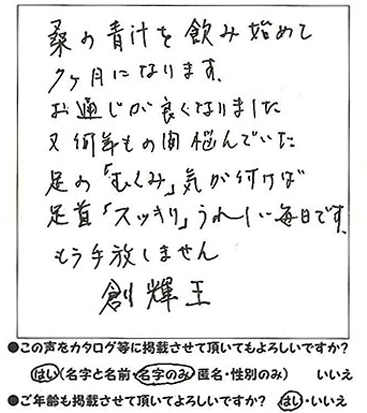 桑の青汁を飲み始めて
7ヶ月になります。
お通じが良くなりました
又何年もの間悩んでいた
足の「むくみ」気が付けば
足首「スッキリ」うれしい毎日です。
もう手放しません
創輝王
●この声をカタログ等に掲載させて頂いてもよろしいですか?
はい(名字と名前・名字のみ・匿名・性別のみ) いいえ
●ご年齢も掲載させて頂いてよろしいですか? はい・いいえ